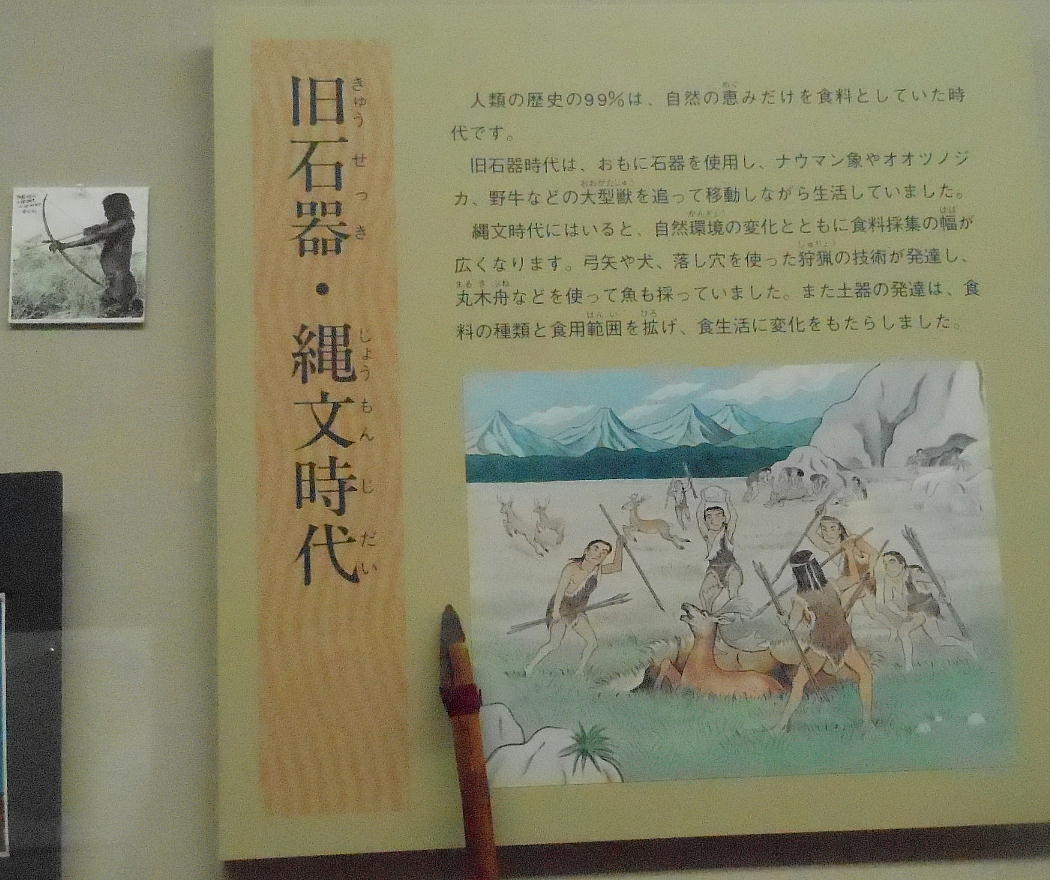 旧石器・縄文時代
きゅうせっき
じょうもんじだい
人類の歴史の99%は、自然の恵みだけを食料としていた時
代です。
旧石器時代は、おもに石器を使用し、ナウマン象やオオツノジ
カ、野牛などの大型獣を追って移動しながら生活していました。
縄文時代にはいると、自然環境の変化とともに食料採集の幅が
広くなります。弓矢や犬、落し穴を使った狩猟の技術が発達し、
丸木舟などを使って魚も採っていました。また土器の発達は、食
料の種類と食用範囲を拡げ、食生活に変化をもたらしました。